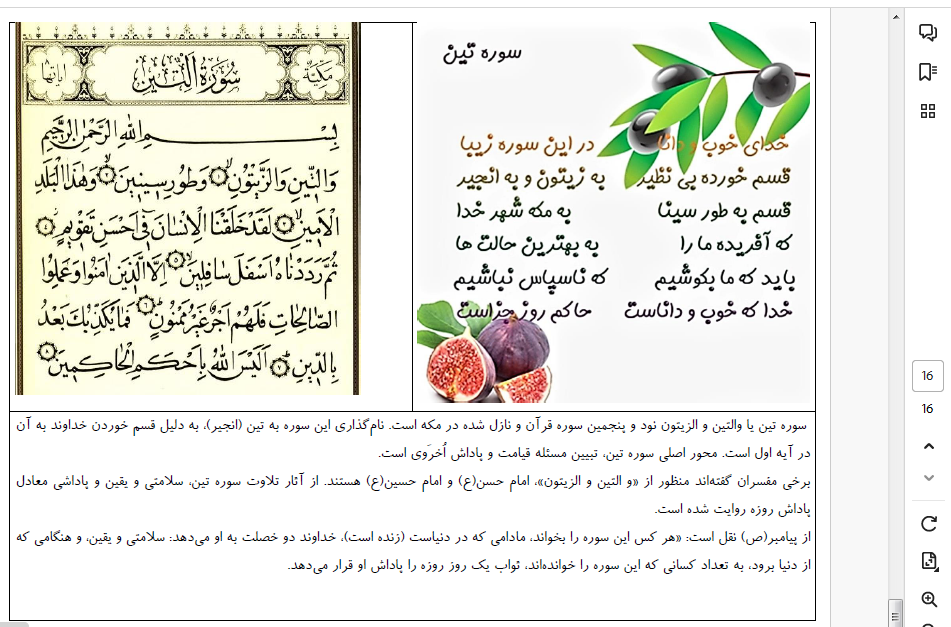 سوره تین
خدای خوب و دانا در این سوره زیبا
قسم خورده بی نظیر به زیتون و به انجیر
قسم به طور سینا به مکه شهر خدا
که آفریده ما را به بهترین حالت ها
باید که ما بکوشیم که ناسپاس نباشیم
خدا که خوب و داناست حاکم روز جزاست
مَكِّيَّة سُورَةُ التِّينِ آیاتها
بِسْمِ اللّٰهِ الرَّحْمٰنِ الرَّحِيمِ
وَالتِّينِ وَالزَّيْتُونِ ۱ وَطُورِ سِينِينَ ۲ وَهٰذَا الْبَلَدِ
الْاَمِينِ ۳ لَقَدْ خَلَقْنَا الْاِنْسَانَ فِي اَحْسَنِ تَقْوِيمٍ ۴
ثُمَّ رَدَدْنَاهُ اَسْفَلَ سَافِلِينَ ۵ اِلَّا الَّذِينَ اٰمَنُوا وَعَمِلُوا
الصَّالِحَاتِ فَلَهُمْ اَجْرٌ غَيْرُ مَمْنُونٍ ۶ فَمَا يُكَذِّبُكَ بَعْدُ
بِالدِّينِ ۷ اَلَيْسَ اللّٰهُ بِاَحْكَمِ الْحَاكِمِينَ ۸
سوره تین یا والتین و الزیتون نود و پنجمین سوره قرآن و نازل شده در مکه است. نام‌گذاری این سوره به تین (انجیر)، به دلیل قسم خوردن خداوند به آن
در آیه اول است. محور اصلی سوره تین، تبیین مسئله قیامت و پاداش اُخرَوی است.
برخی مفسران گفته‌اند منظور از «و التین و الزیتون»، امام حسن(ع) و امام حسین(ع) هستند. از آثار تلاوت سوره تین، سلامتی و یقین و پاداشی معادل
پاداش روزه روایت شده است.
از پیامبر(ص) نقل است: «هر کس این سوره را بخواند، مادامی که در دنیاست (زنده است)، خداوند دو خصلت به او می‌دهد: سلامتی و یقین، و هنگامی که
از دنیا برود، به تعداد کسانی که این سوره را خوانده‌اند، ثواب یک روز روزه را پاداش او قرار می‌دهد.
16
16